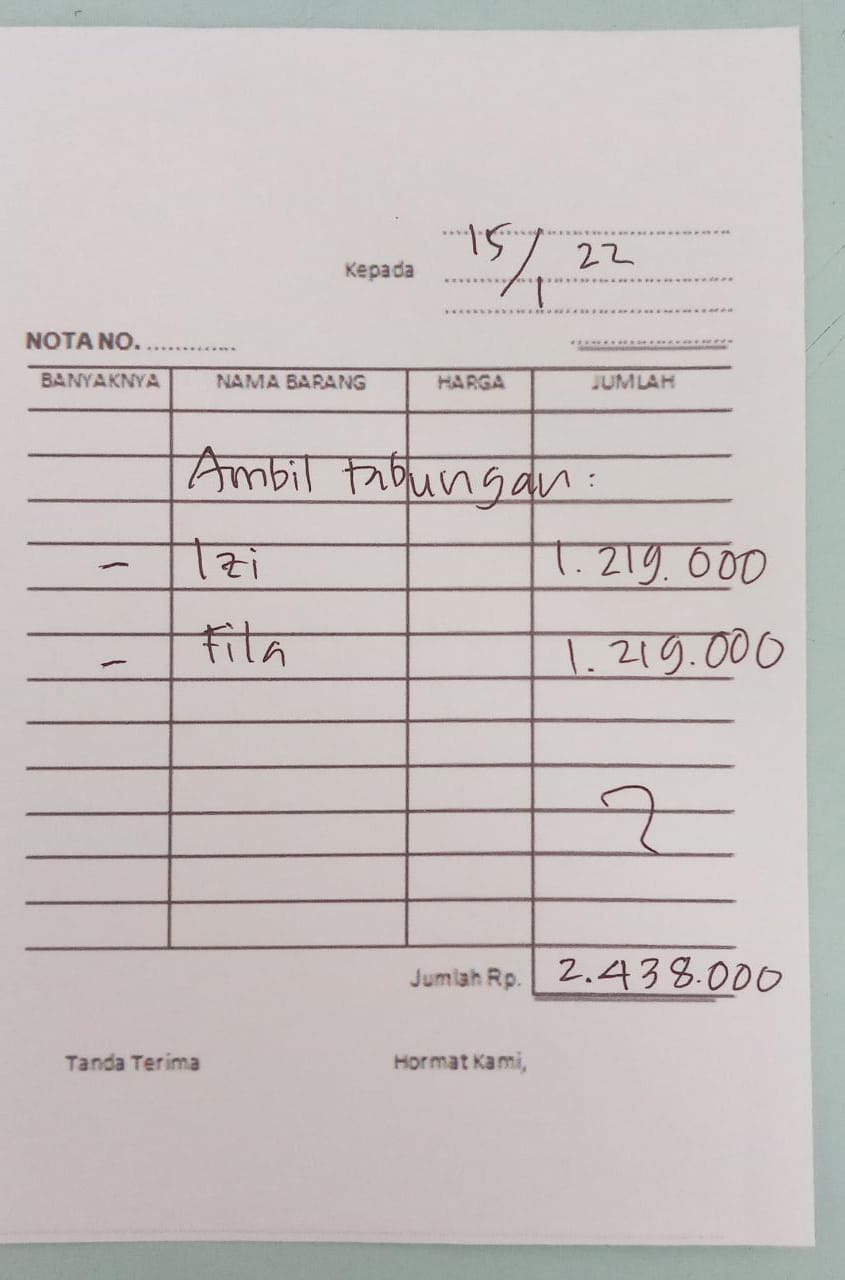 15/1 22
Kepada
NOTA NO. .............
BANYAKNYA NAMA BARANG HARGA JUMLAH
Ambil tabungan:
- Izi 1.219.000
- Fila 1.219.000
Jumlah Rp. 2.438.000
Tanda Terima Hormat Kami,